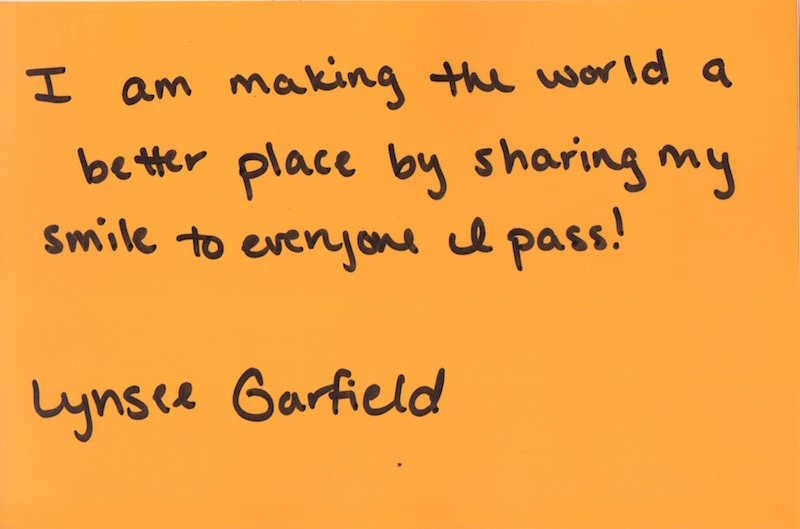 I am making the world a
better place by sharing my
smile to everyone I pass!
Lynsee Garfield